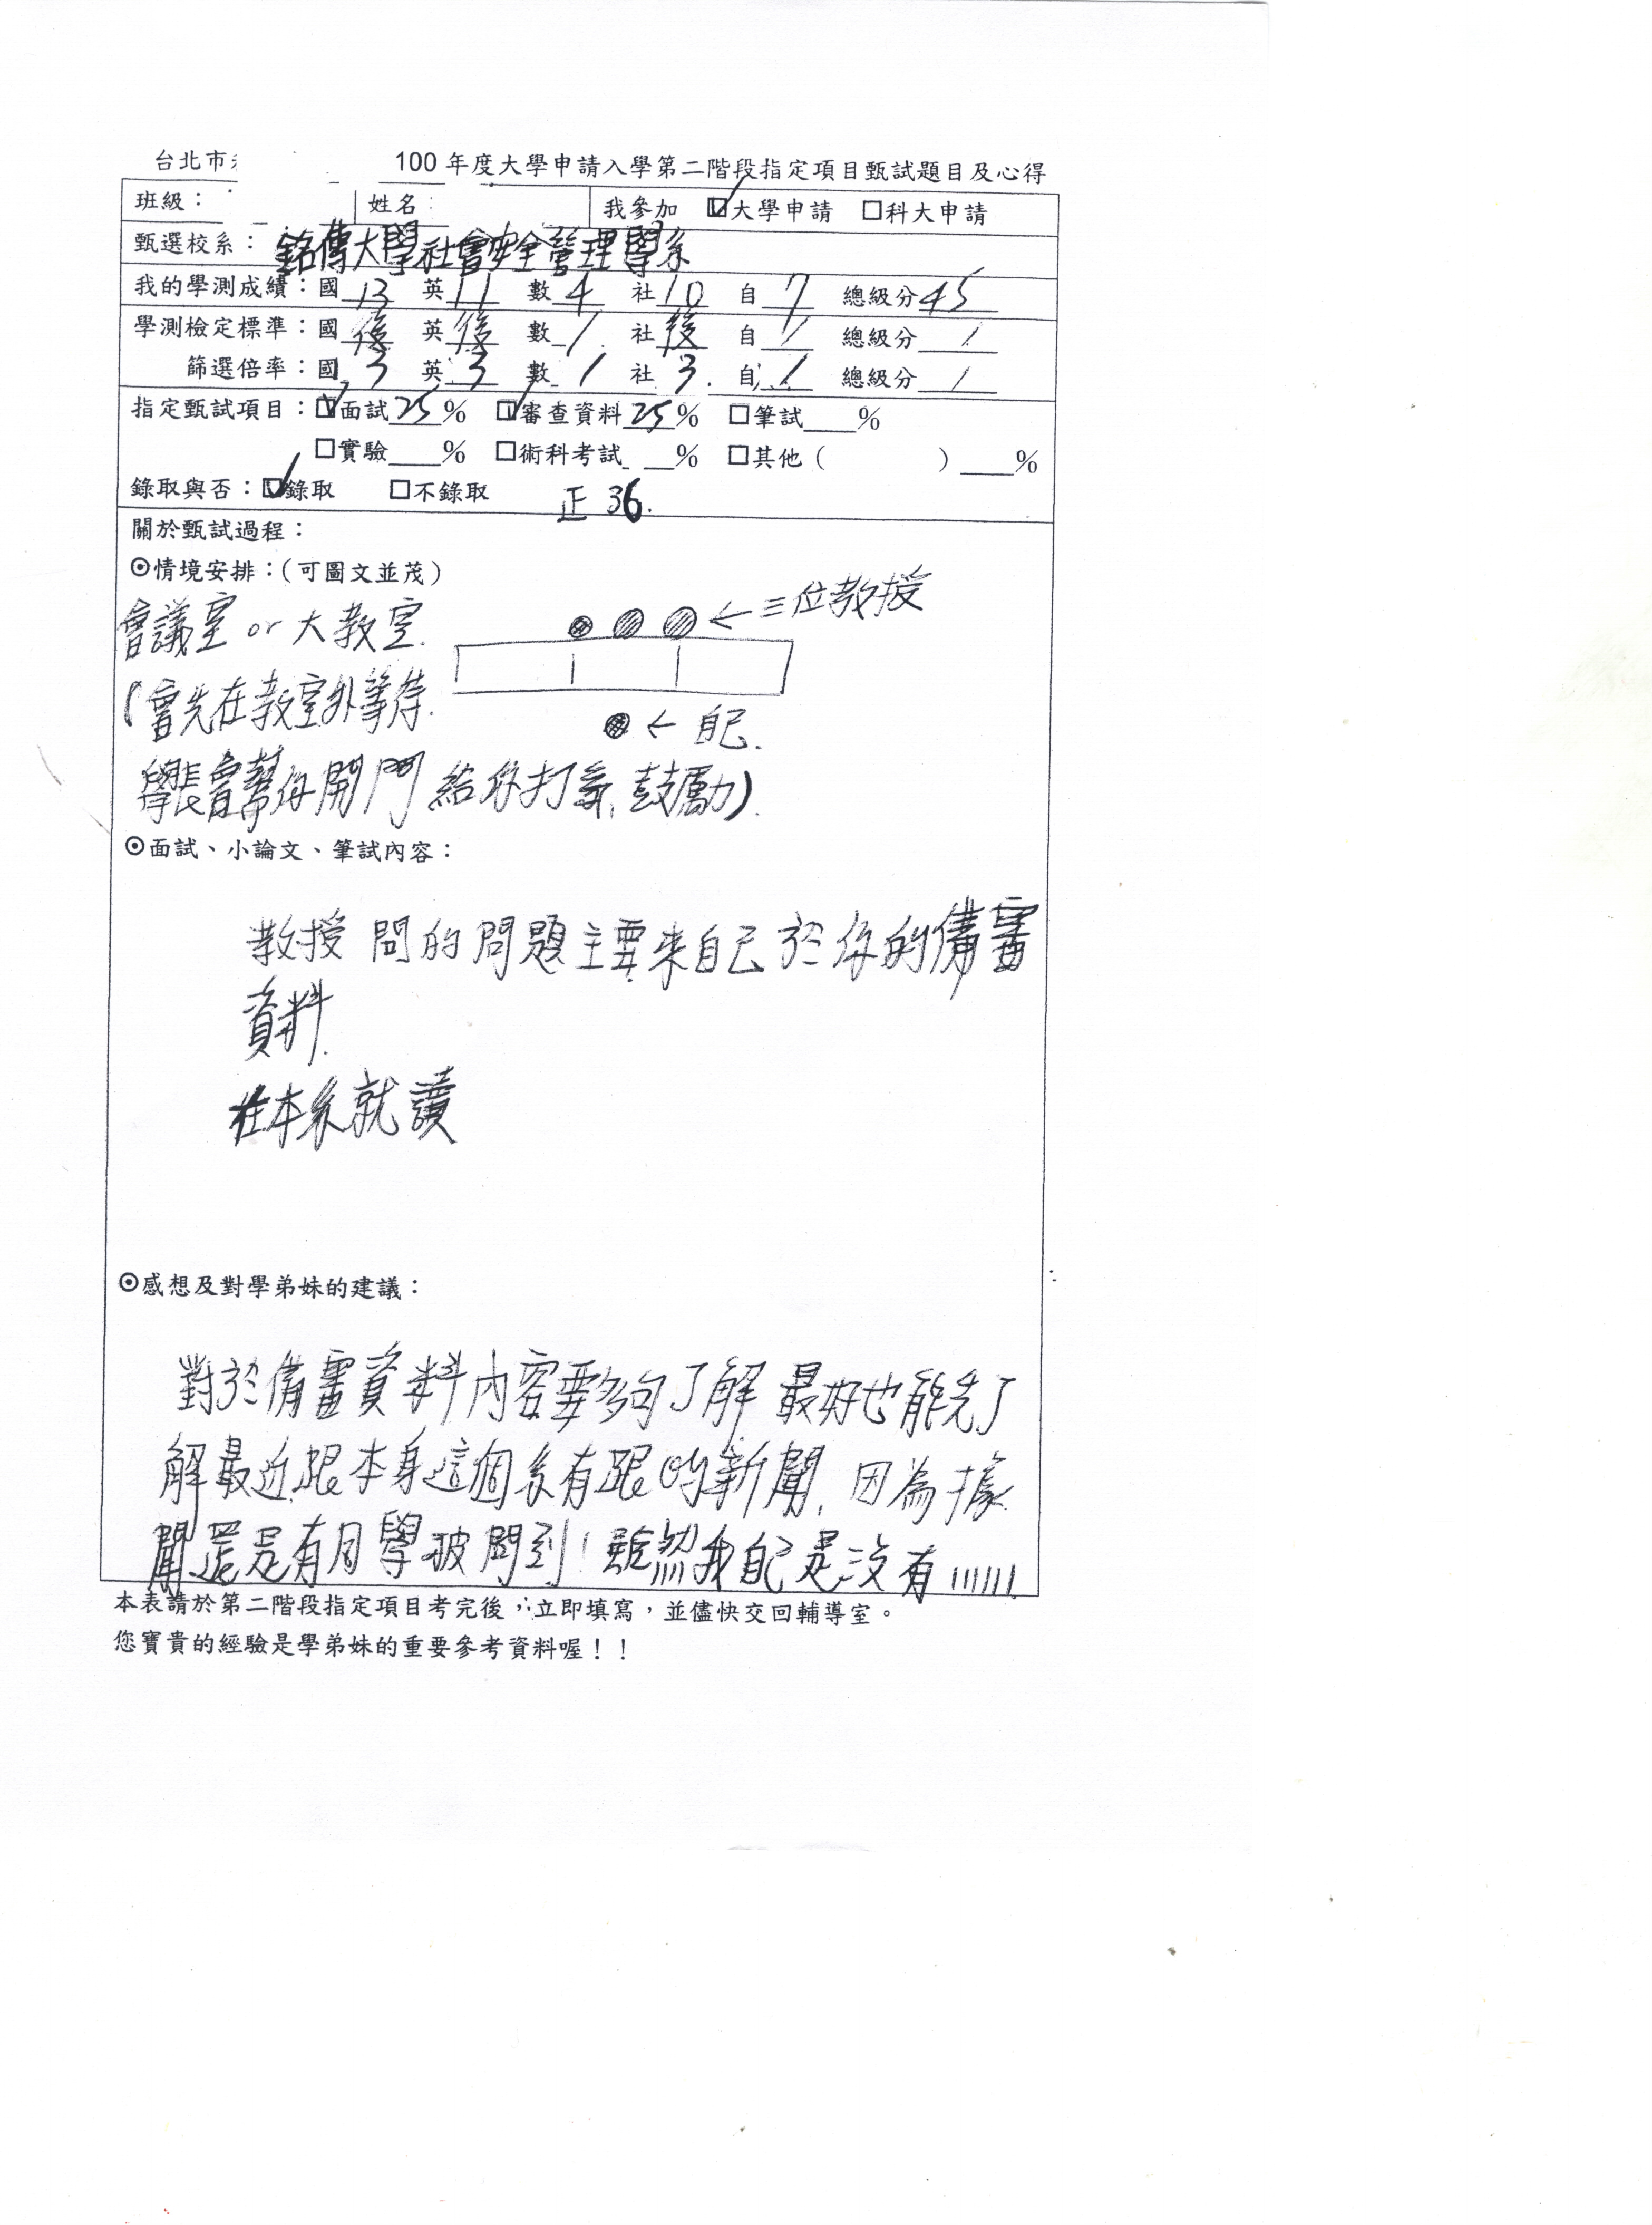 台北市 100 年度大學申請入學第二階段指定項目甄試題目及心得
班級： 姓名 我參加 ☑大學申請 □科大申請
甄選校系：銘傳大學社會安全管理學系
我的學測成績：國 13 英 11 數 4 社 10 自 7 總級分 45
學測檢定標準：國 後 英 後 數 / 社 後 自 / 總級分 /
篩選倍率：國 3 英 3 數 / 社 3 自 / 總級分 /
指定甄試項目：☑面試 25 % ☑審查資料 25 % □筆試____%
□實驗____% □術科考試____% □其他（ ）____%
錄取與否：☑錄取 □不錄取 正 36.
關於甄試過程：
⊙情境安排：（可圖文並茂）
會議室 or 大教室.
←三位教授
(會先在教室外等待.
← 自己.
學長會幫你開門 給你打氣, 鼓勵).
⊙面試、小論文、筆試內容：
教授 問的問題主要來自己於你的備審
資料.
在本系就讀
⊙感想及對學弟妹的建議：
對於備審資料內容要夠了解 最好也能先了
解最近跟本身這個系有跟的新聞, 因為據
聞還是有同學被問到! 雖然我自己是沒有''''''
本表請於第二階段指定項目考完後，立即填寫，並儘快交回輔導室。
您寶貴的經驗是學弟妹的重要參考資料喔！！